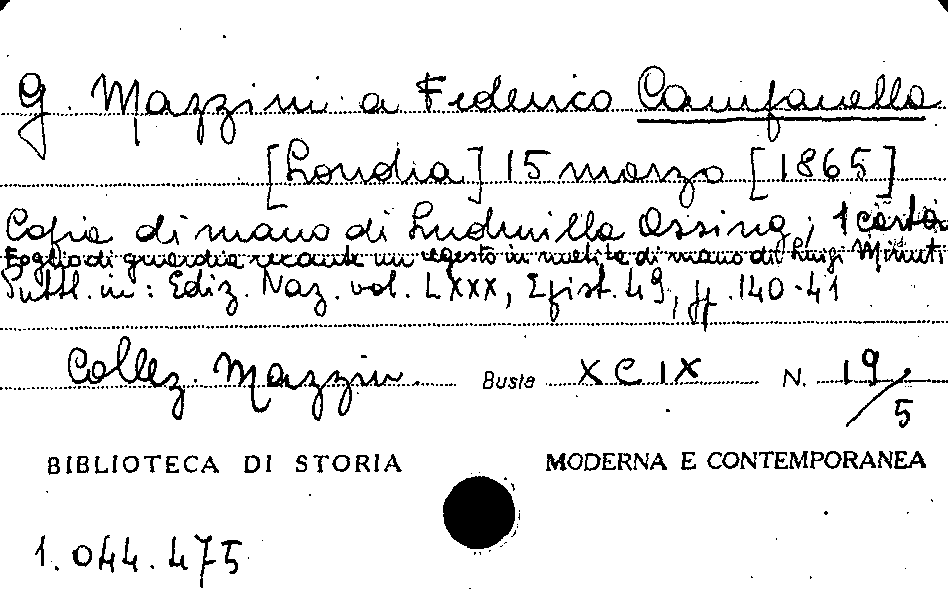 G. Mazzini a Federico Campanella
[Londra] 15 marzo [1865]
Copia di mano di Ludmilla Assing; 1 carta
Foglio di guardia recante un regesto in matita di mano di Luigi Minuti
Pubbl. in: Ediz. Naz. vol. LXXX, Epist. 49, pp. 140-41
Collez. Mazzini Busta XCIX N. 19/5
BIBLIOTECA DI STORIA MODERNA E CONTEMPORANEA
1.044.475